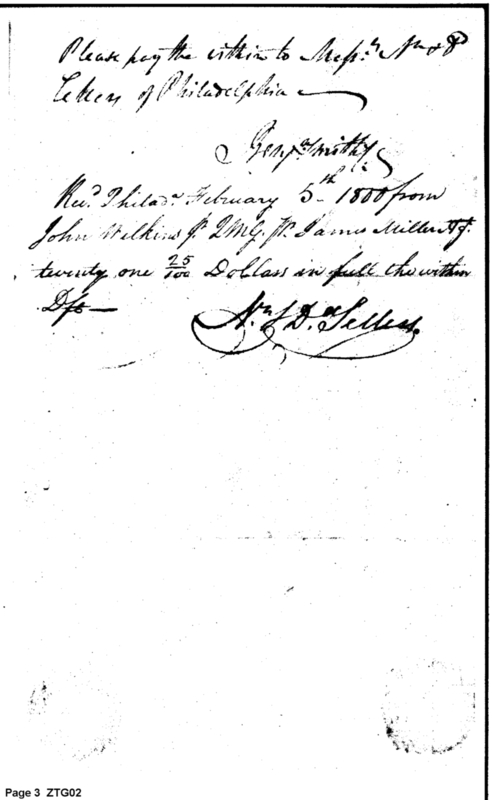 Please pay the within to Messrs. Nn & Dd
Sellers of Philadelphia
Benjn Smith
Recd Philada February 5th 1800 from
John Wilkins Jr QMG pr James Miller Agt
twenty one 25/100 Dollars in full the within
Dft
Nn & Dd Sellers.
Page 3 ZTG02